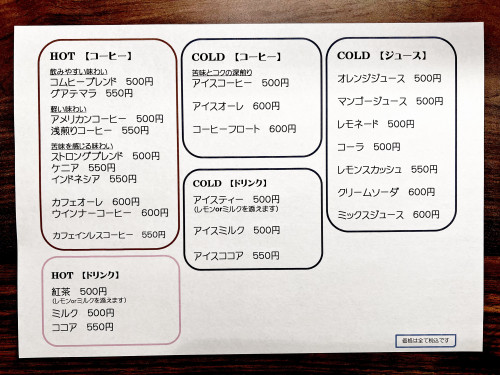 HOT 【コーヒー】
飲みやすい味わい
コムヒーブレンド 500円
グアテマラ 550円
軽い味わい
アメリカンコーヒー 500円
浅煎りコーヒー 550円
苦味を感じる味わい
ストロングブレンド 500円
ケニア 550円
インドネシア 550円
カフェオーレ 600円
ウインナーコーヒー 600円
カフェインレスコーヒー 550円
HOT 【ドリンク】
紅茶 500円
(レモンorミルクを添えます)
ミルク 500円
ココア 550円
COLD 【コーヒー】
苦味とコクの深煎り
アイスコーヒー 500円
アイスオーレ 600円
コーヒーフロート 600円
COLD 【ドリンク】
アイスティー 550円
(レモンorミルクを添えます)
アイスミルク 500円
アイスココア 550円
COLD 【ジュース】
オレンジジュース 500円
マンゴージュース 500円
レモネード 500円
コーラ 500円
レモンスカッシュ 550円
クリームソーダ 600円
ミックスジュース 600円
価格は全て税込です